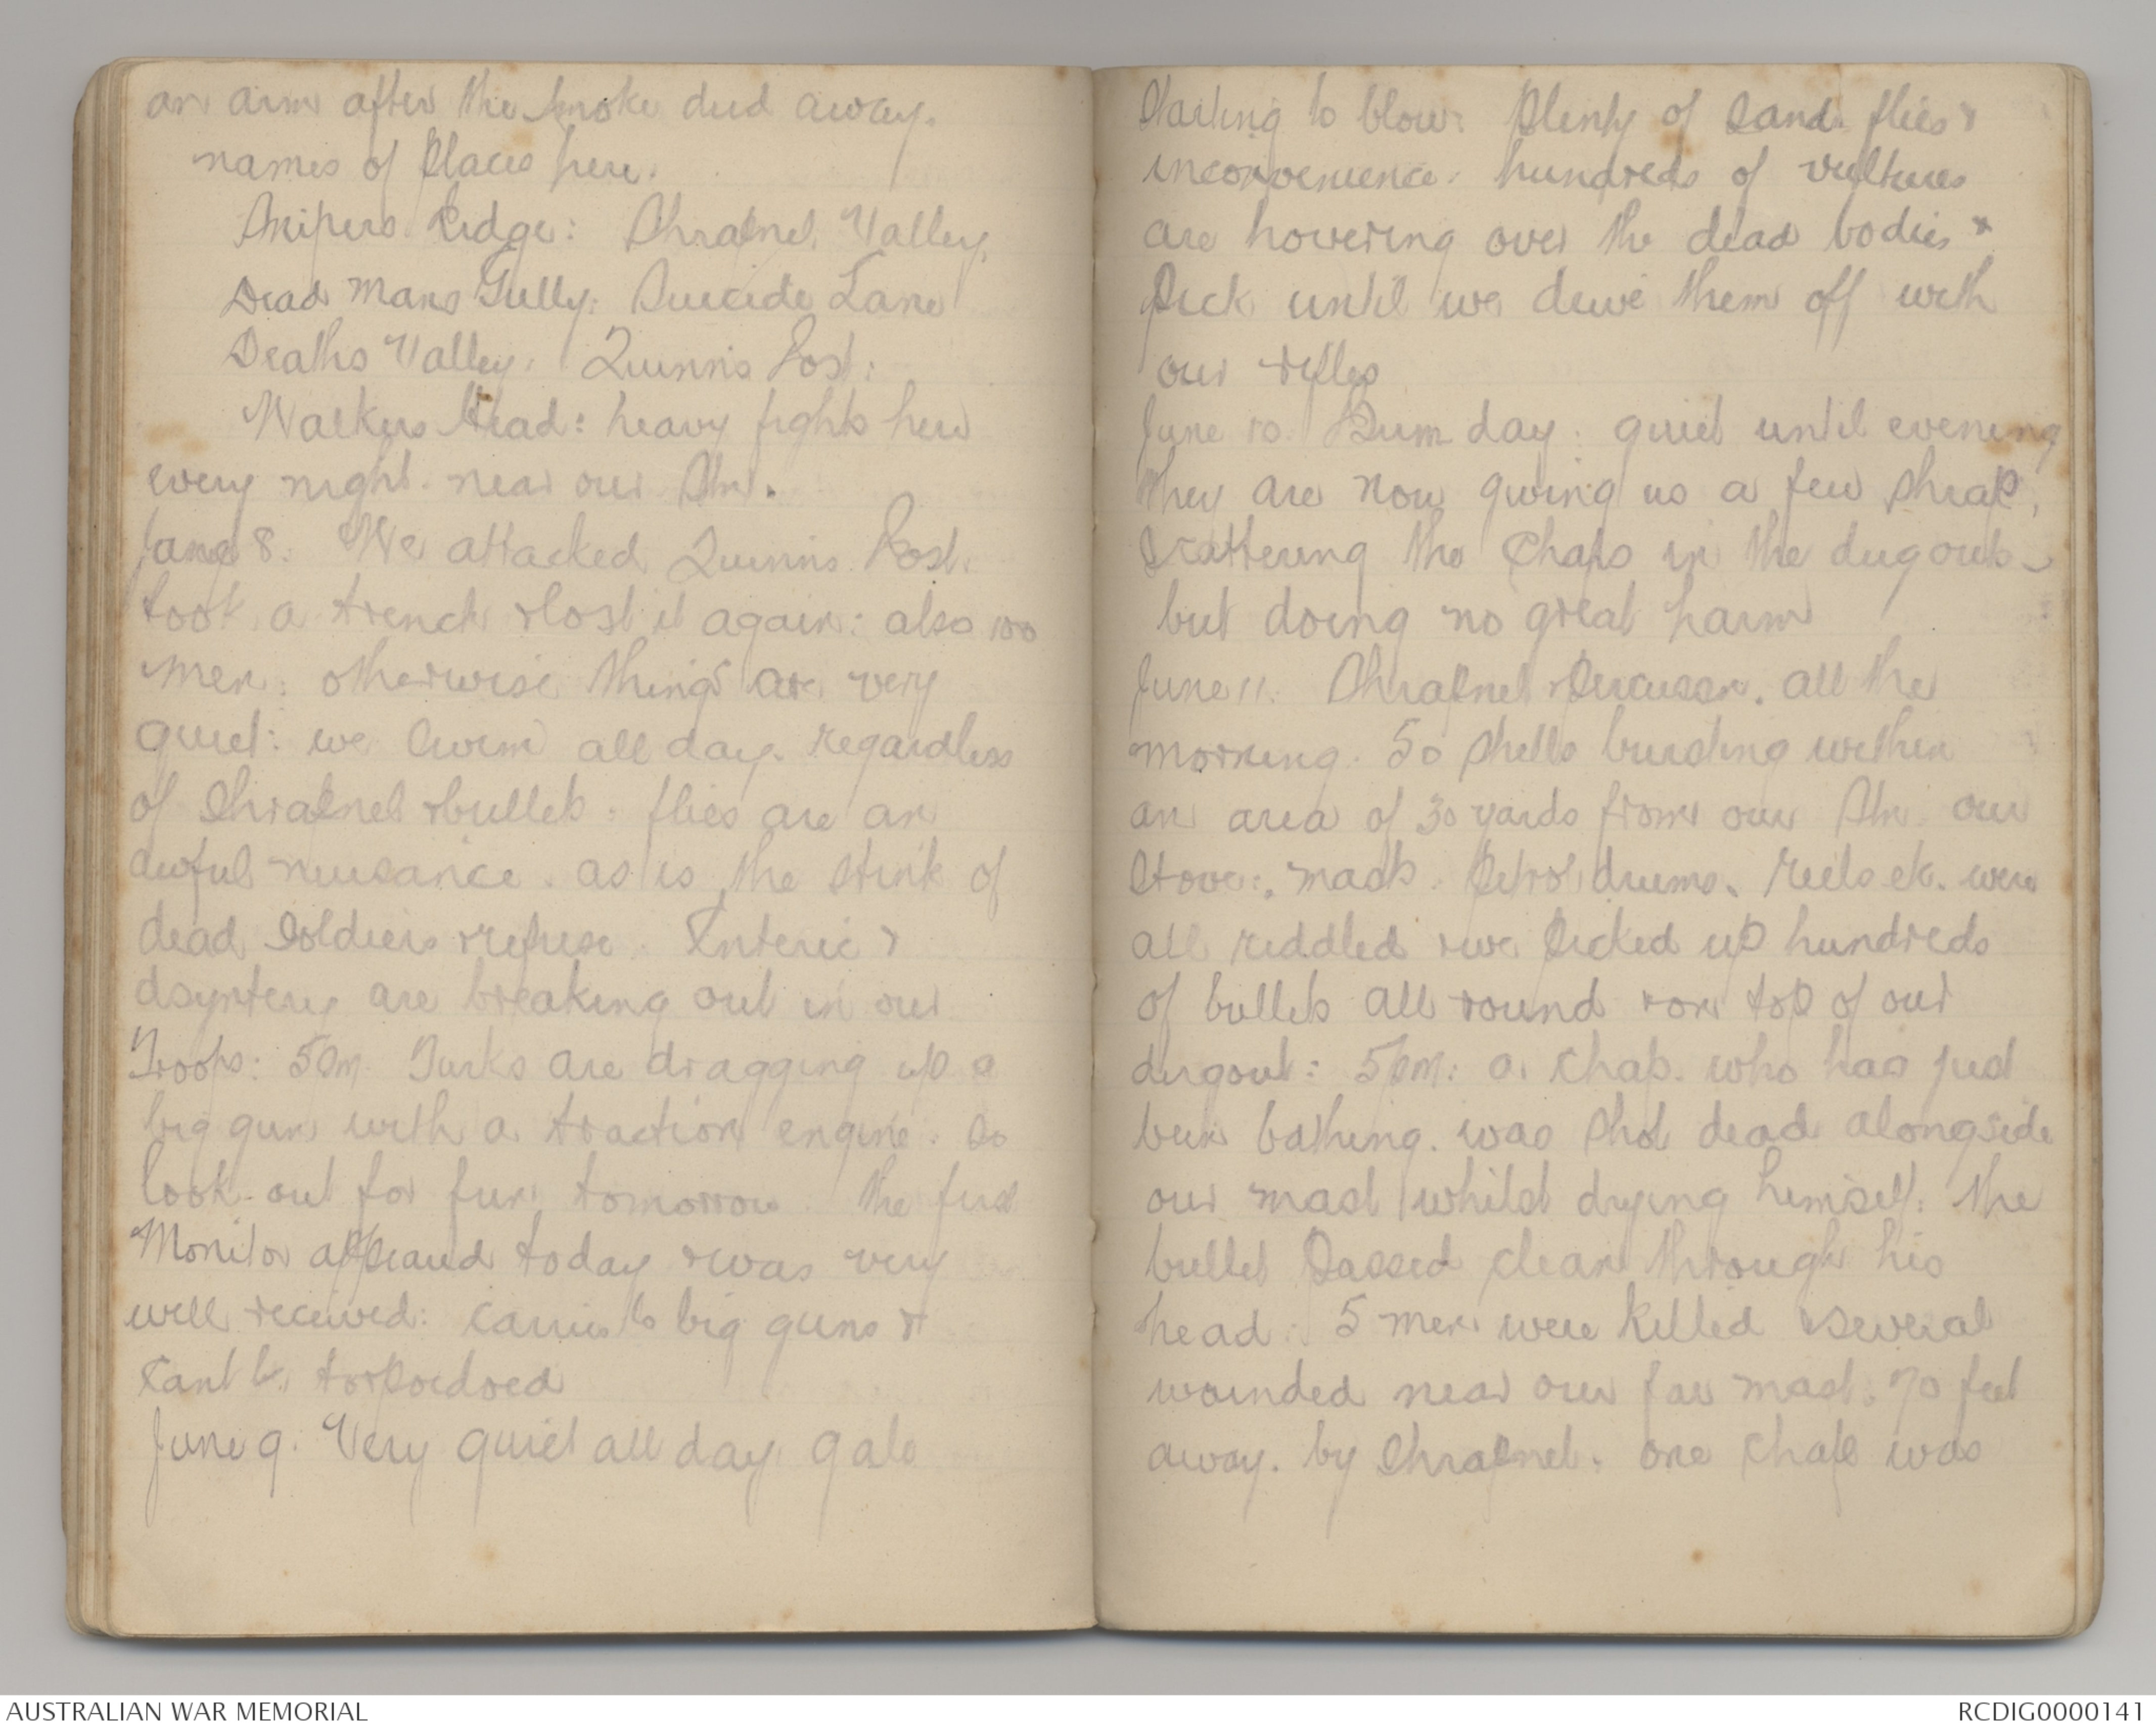 an arm after the smoke died away.
names of places here.
Snipers Ridge: Shrapnel Valley,
Dead mans Gully: Suicide Lane
Deaths Valley. Quinns Post:
Walkers head: heavy fights here
every night. near our Stn.
June 8. We attacked Quinns Post.
took a trench & lost it again: also 100
men: otherwise things are very
quiet: we swim all day. regardless
of shrapnel & bullets. flies are an
awful nuisance. as is the stink of
dead soldiers & refuse. Enteric &
dsyntery are breaking out in our
Troops: 5pm. Turks are dragging up a
big gun with a traction engine. so
look out for fun tomorrow. the first
Monitor appeared today & was very
well received: carries 6 big guns &
cant be torpoedoed
June 9. Very quiet all day. gale
starting to blow. Plenty of sand. flies &
inconvenience. hundreds of vultures
are hovering over the dead bodies &
pick until we drive them off with
our rifles
June 10. Bum day. quiet until evening
they are now giving us a few shrap,
scattering the chaps in the dugouts
but doing no great harm
June 11. Shrapnel & percussn. all the
morning. 50 shells bursting within
an area of 30 yards from our Stn. our
stove, masts. petrol drums. reels etc. were
all riddled & we picked up hundreds
of bullets all round & on top of our
dugout: 5pm: a chap. who has just
been bathing. was shot dead alongside
our mast whilst drying himself. the
bullet passed clean through his
head. 5 men were killed & several
wounded near our far mast. 70 feet
away. by shrapnel. one chap was
AUSTRALIAN WAR MEMORIAL
RCDIG0000141